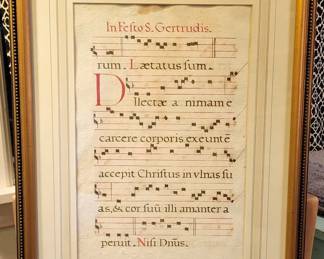 In Festo S. Gertrudis.
rum. Lætatus sum.
Dilectæ animam e
carcere corporis exeuntē
accepit Christus in vlnas su
as, & cor suū illi amanter a
peruit. Nisi Dñus.